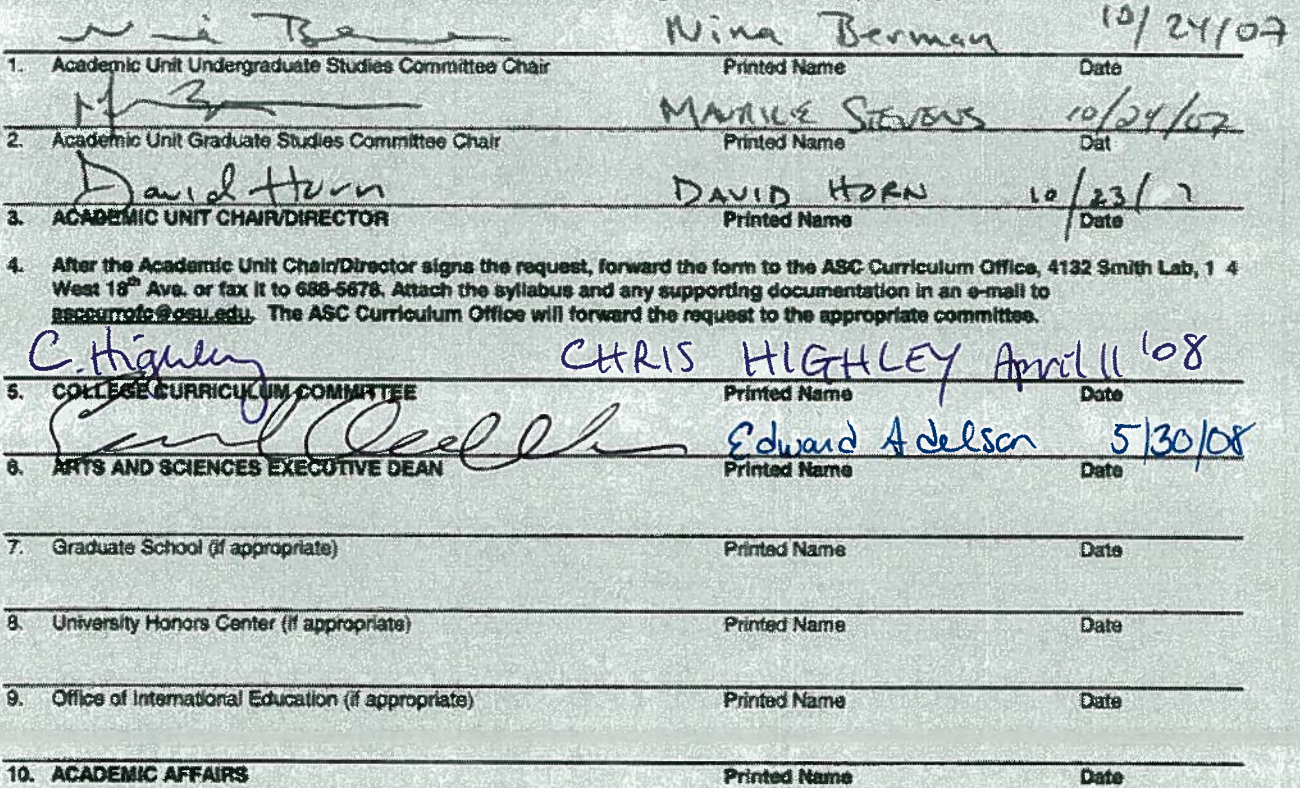 Nina Berman 10/24/07
1. Academic Unit Undergraduate Studies Committee Chair Printed Name Date
MAURICE STEVENS 10/24/07
2. Academic Unit Graduate Studies Committee Chair Printed Name Dat
David Horn DAVID HORN 10/23/ 7
3. ACADEMIC UNIT CHAIR/DIRECTOR Printed Name Date
4. After the Academic Unit Chair/Director signs the request, forward the form to the ASC Curriculum Office, 4132 Smith Lab, 1 4
West 18th Ave. or fax it to 688-5678. Attach the syllabus and any supporting documentation in an e-mail to
asccurrofc@osu.edu. The ASC Curriculum Office will forward the request to the appropriate committee.
C. Highley CHRIS HIGHLEY April 11 '08
5. COLLEGE CURRICULUM COMMITTEE Printed Name Date
Edward Adelson 5/30/08
6. ARTS AND SCIENCES EXECUTIVE DEAN Printed Name Date
7. Graduate School (if appropriate) Printed Name Date
8. University Honors Center (if appropriate) Printed Name Date
9. Office of International Education (if appropriate) Printed Name Date
10. ACADEMIC AFFAIRS Printed Name Date